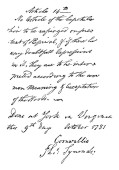 Article 14th
No Article of the Capitulation
to be infringed on pretext
of Reprisal, & if there be
any doubtful Expressions
in it, they are to be inter-
preted according to the com-
mon Meaning & Acceptation
of the Words.
Done at York in Virginia
the 19th day October 1781
Cornwallis
Thos. Symonds